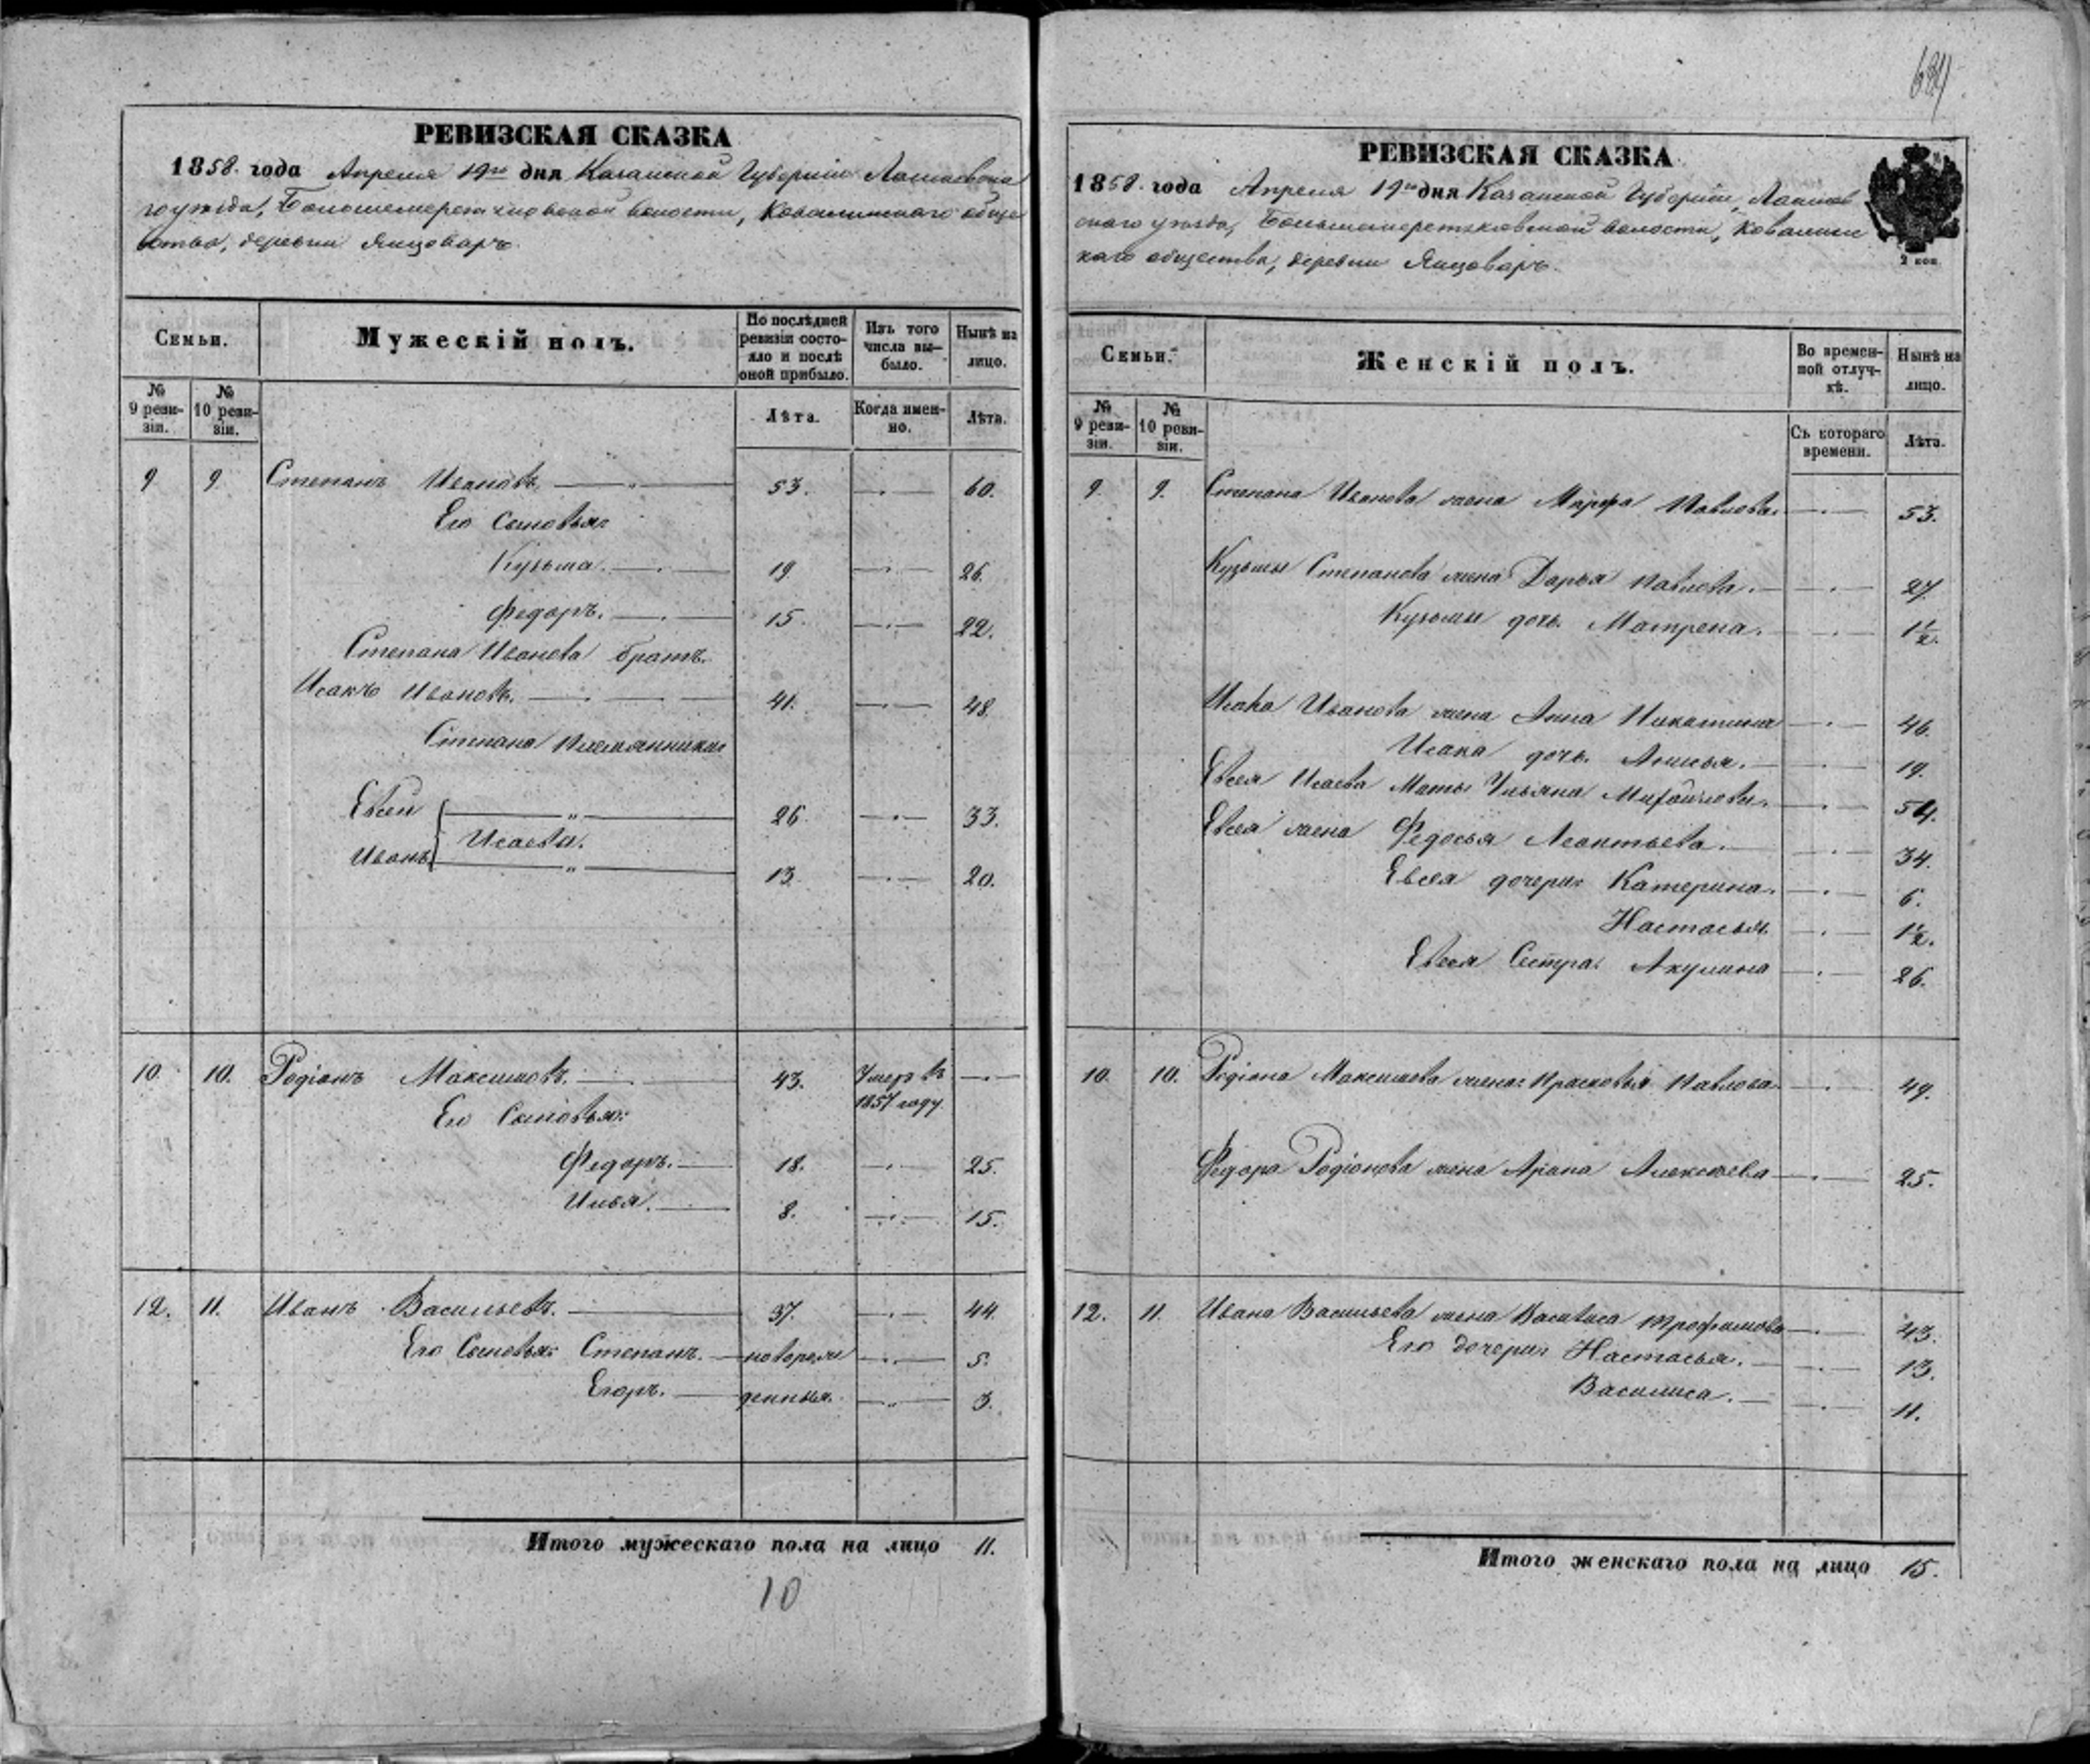 684
РЕВИЗСКАЯ СКАЗКА
1858. года Апреля 19го дня Казанской Губерніи Лаишевска
го уѣзда, Большемеретяковской волости, Ковалинскаго обще
ства, деревни Янцоваръ.
Семьи.
Мужескій полъ.
По послѣдней ревизіи состояло и послѣ оной прибыло.
Изъ того числа выбыло.
Нынѣ на лицо.
№ 9 ревизіи.
№ 10 ревизіи.
Лѣта.
Когда именно.
Лѣта.
9 9 Степанъ Ивановъ. 53. 60.
Его Сыновья:
Кузьма. 19 26.
Федоръ. 15. 22.
Степана Иванова братъ.
Исакъ Ивановъ. 41. 48.
Степана племянники
Евсей 26. 33.
Исаевы.
Иванъ 13. 20.
10. 10. Родіонъ Максимовъ. 43. Умеръ въ
1857 году.
Его Сыновья:
Федоръ. 18. 25.
Илья. 8. 15.
12. 11. Иванъ Васильевъ. 37. 44.
Его Сыновья: Степанъ. новорож 5.
Егоръ. денныя. 3.
Итого мужескаго пола на лицо 11.
10
РЕВИЗСКАЯ СКАЗКА
1858. года Апреля 19го дня Казанской Губерніи, Лаишев
скаго уѣзда, Большемеретяковской волости, Ковалинс
каго общества, деревни Янцоваръ.
2 коп.
Семьи.
Женскій полъ.
Во временной отлучкѣ.
Нынѣ на лицо.
№ 9 ревизіи.
№ 10 ревизіи.
Съ котораго времени.
Лѣта.
9. 9. Степана Иванова жена Марфа Павлова. 53.
Кузьмы Степанова жена Дарья Павлова. 27.
Кузьмы дочь Матрена. 1½.
Исака Иванова жена Анна Никитина 46.
Исака дочь 19.
Евсея Исаева Мать Ульяна Михайлова. 54.
Евсея жена Федосья Леонтьева. 34.
Евсея дочери: Катерина. 6.
Настасья. 1½.
Евсея Сестра: Акулина 26.
10. 10. Родіона Максимова жена: Прасковья Павлова. 49.
Федора Родіонова жена Арина Алексѣева 25.
12. 11. Ивана Васильева жена Василиса Трофимова 43.
Его дочери: Настасья. 13.
Василиса. 11.
Итого женскаго пола на лицо 15.